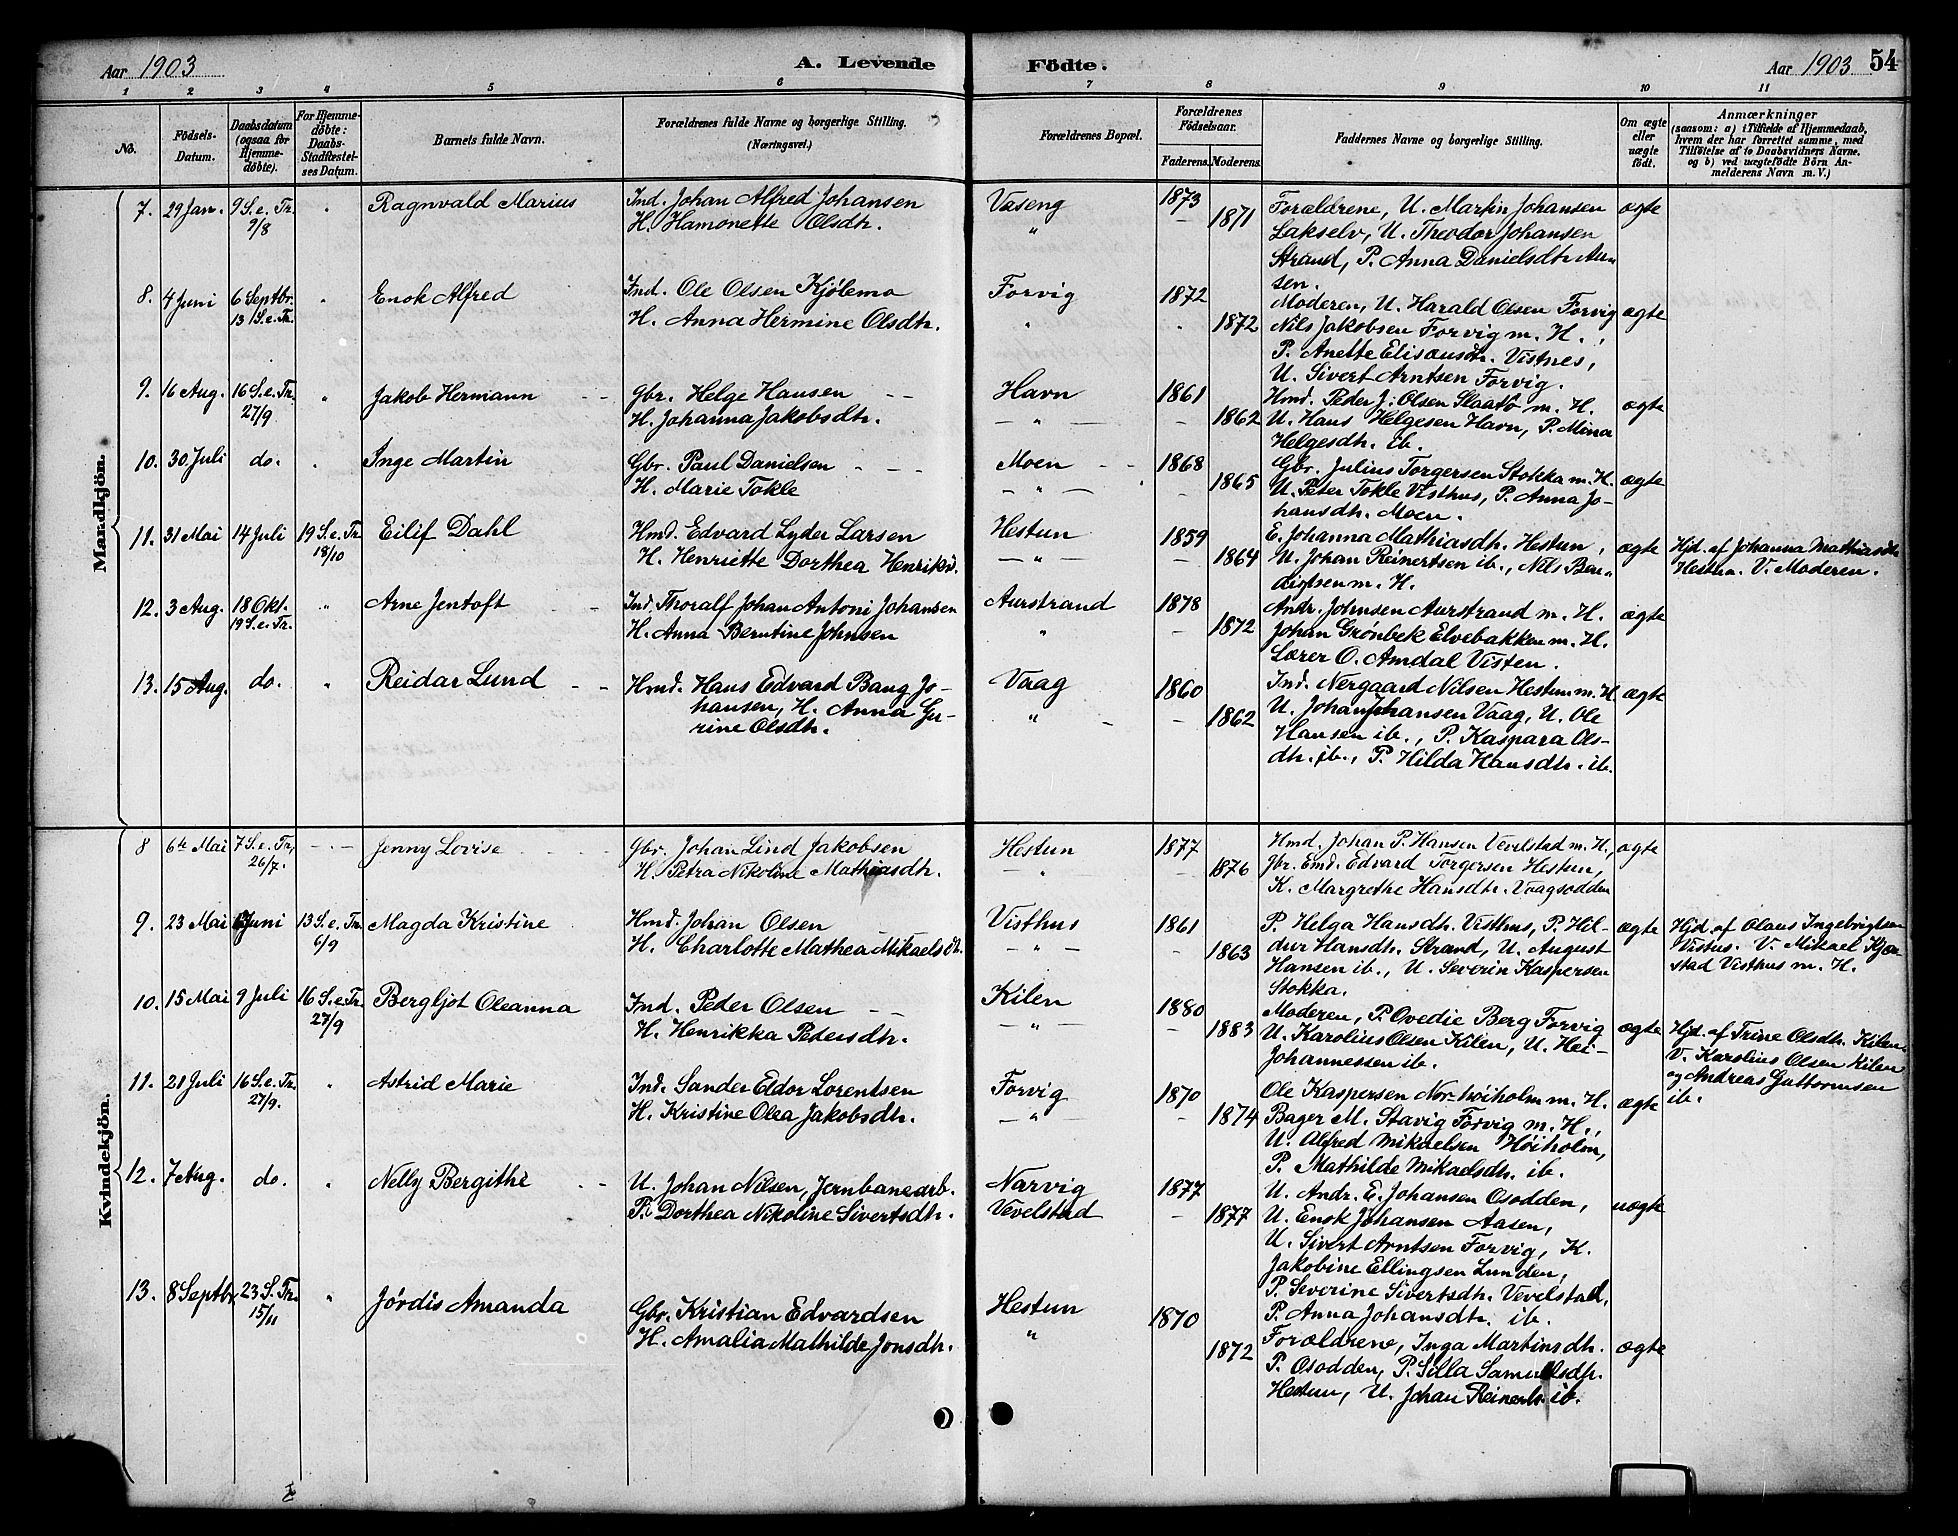 Aar 1903 A. Levende Fødte. Aar 1903 54
1 2 3 4 5 6 7 8 9 10 11
No. Fødsels-Datum. Daabsdatum (ogsaa for Hjemmedøbte). For Hjemmedøbte: Daabs-Stadfæstelses Datum. Barnets fulde Navn. Forældrenes fulde Navne og borgerlige Stilling. (Næringsvei.) Forældrenes Bopæl. Forældrenes Fødselsaar. Faderens. Moderens. Faddernes Navne og borgerlige Stilling. Om ægte eller uægte født. Anmærkninger (saasom: a) i Tilfælde af Hjemmedaab, hvem der har forrettet samme, med Tilføielse af to Daabsvidners Navne, og b) ved uægtefødte Børn Anmelderens Navn m. V.)
Mandkjøn.
7. 29 Jan. 9 S. e. Tr. 9/8 " Ragnvald Marius
Ind. Johan Alfred Johansen
H. Hamonette Olsdtr.
Vaseng
"
1873
1871
Forældrene, U. Martin Johansen
Lakselv, U. Theodor Johansen
Strand, P. Anna Danielsdtr. Aun
sen.
ægte
8. 4 Juni 6 Septbr. 13 S. e. Tr. " Enok Alfred
Ind. Ole Olsen Kjølemo
H. Anna Hermine Olsdtr.
Forvig
"
1872
1872
Moderen, U. Harald Olsen Forvig
Nils Jakobsen Forvig m. H.,
P. Anette Elisæusdtr. Vistnes,
U. Sivert Arntsen Forvig.
ægte
9. 16 Aug. 16 S. e. Tr. 27/9 " Jakob Hermann
Gbr. Helge Hansen
H. Johanna Jakobsdtr.
Havn
"
1861
1862
Hmd. Peder J. Olsen Slaatø m. H.
U. Hans Helgesen Havn, P. Mina
Helgesdtr. ib.
ægte
10. 30 Juli do. " Inge Martin
Gbr. Paul Danielsen
H. Marie Tokle
Moen
"
1868
1865
Gbr. Julius Torgersen Stokka m. H.
U. Peter Tokle Visthus, P. Anna Jo-
hansdtr. Moen.
ægte
11. 31 Mai 14 Juli 19 S. e. Tr. 18/10 Eilif Dahl
Hmd. Edvard Lyder Larsen
H. Henriette Dorthea Henriksd.
Hestun
"
1859
1864
E. Johanna Mathiasdtr. Hestun,
U. Johan Reinertsen ib., Nils Ben-
digtsen m. H.
ægte
Hjd. af Johanna Mathiasdtr
Hestun. V. Moderen.
12. 3 Aug. 18 Okt. 19 S. e. Tr. " Arne Jentoft
Ind. Thoralf Johan Antoni Johansen
H. Anna Berntine Johnsen
Aurstrand
"
1878
1872
Andr. Johnsen Aurstrand m. H.
Johan Grønbek Elvebakken m. H.
Lærer O. Amdal Visten.
ægte
13. 15 Aug. do. " Reidar Lund
Hmd. Hans Edvard Bang Jo-
hansen, H. Anna Gu-
rine Olsdtr.
Vaag
"
1860
1862
Ind. Nergaard Nilsen Hestun m. H
U. Johan Johansen Vaag, U. Ole
Hansen ib., P. Kaspara Ols-
dtr. ib., P. Hilda Hansdtr. ib.
ægte
Kvindekjøn.
8 6te Mai 7 S. e. Tr. 26/7. Jenny Lovise
Gbr. Johan Lind Jakobsen
H. Petra Nikoline Mathiasdtr.
Hestun
"
1877
1876
Hmd. Johan P. Hansen Vevelstad m. H.,
Gbr. Emd. Edvard Torgersen Hestun,
K. Margrethe Hansdtr. Vaagsodden
ægte
9. 23 Mai Juni 13 S. e. Tr. 6/9 Magda Kristine
Hmd. Johan Olsen
H. Charlotte Mathea Mikaelsdtr.
Visthus
"
1861
1863
P. Helga Hansdtr. Visthus, P. Hil-
dur Hansdtr. Strand, U. August
Hansen ib., U. Severin Kaspersen
Stokka.
ægte
Hjd. af Olaus Ingebrigtsen
Vistus. V. Mikael Kjæ
stad Visthus m. H.
10. 15 Mai 9 Juli 16 S. e. Tr. 27/9 Bergljot Oleanna
Ind. Peder Olsen
H. Henrikka Petersdtr.
Kilen
"
1880
1883
Moderen, P. Ovedie Berg Forvig
U. Karolius Olsen Kilen, U. Hei-
Johannessen ib.
ægte
Hjd. af Trine Olsdtr. Kilen.
V. Karolius Olsen Kilen
og Andreas Guttormsen
ib.
11. 21 Juli 16 S. e. Tr. 27/9. " Astrid Marie
Ind. Sander Eldor Lorentsen
H. Kristine Olea Jakobsdtr.
Forvig
"
1870
1874
Ole Kaspersen Nor-høiholm m. H.
Bager M. Stavig Forvig m. H.,
U. Alfred Mikaelsen Høiholm,
P. Mathilde Mikaelsdtr. ib.
ægte
12. 7 Aug. do. " Nelly Bergithe
U. Johan Nilsen, Jernbanearb.
P. Dorthea Nikoline Sivertsdtr.
Narvig
Vevelstad
1877
1877
U. Andr. E. Johansen Osodden,
U. Enok Johansen Aasen,
U. Sivert Arntsen Forvig, K.
Jakobine Ellingsen Lunden,
P. Severine Sivertsdtr. Vevelstad,
P. Anna Johansdtr. ib.
uægte
13. 8 Septbr. 23 S. Tr. 15/11 " Jørdis Amanda
Gbr. Kristian Edvardsen
H. Amalia Mathilde Jonsdtr.
Hestun
"
1870
1872
Forældrene, Inga Martinsdtr.
P. Osodden, P. Silla Samuelsdtr.
Hestun, U. Johan Reinerts. ib.
ægte